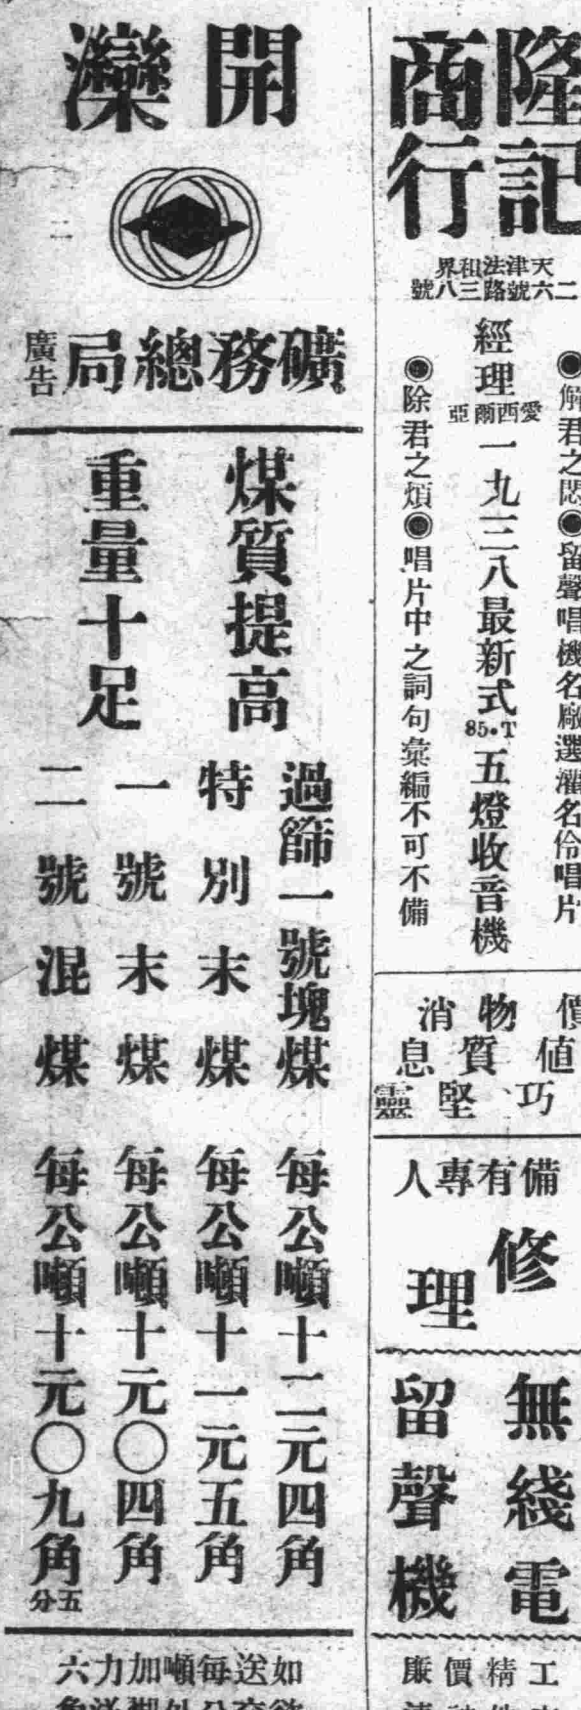 隆記
商行
天津法租界
二六號路三八號
解君之悶◉留聲唱機名廠選灌名伶唱片
經理
愛西爾亞
一九三八最新式
85·T
五燈收音機
◉除君之煩◉唱片中之詞句彙編不可不備
價值巧
物質堅
消息靈
備有專人
修理
無綫電
留聲機
工精價廉
開灤
礦務總局
廣告
煤質提高
重量十足
過篩一號塊煤 每公噸十二元四角
特別末煤 每公噸十一元五角
一號末煤 每公噸十元〇四角
二號混煤 每公噸十元〇九角五分
如送每噸加力六